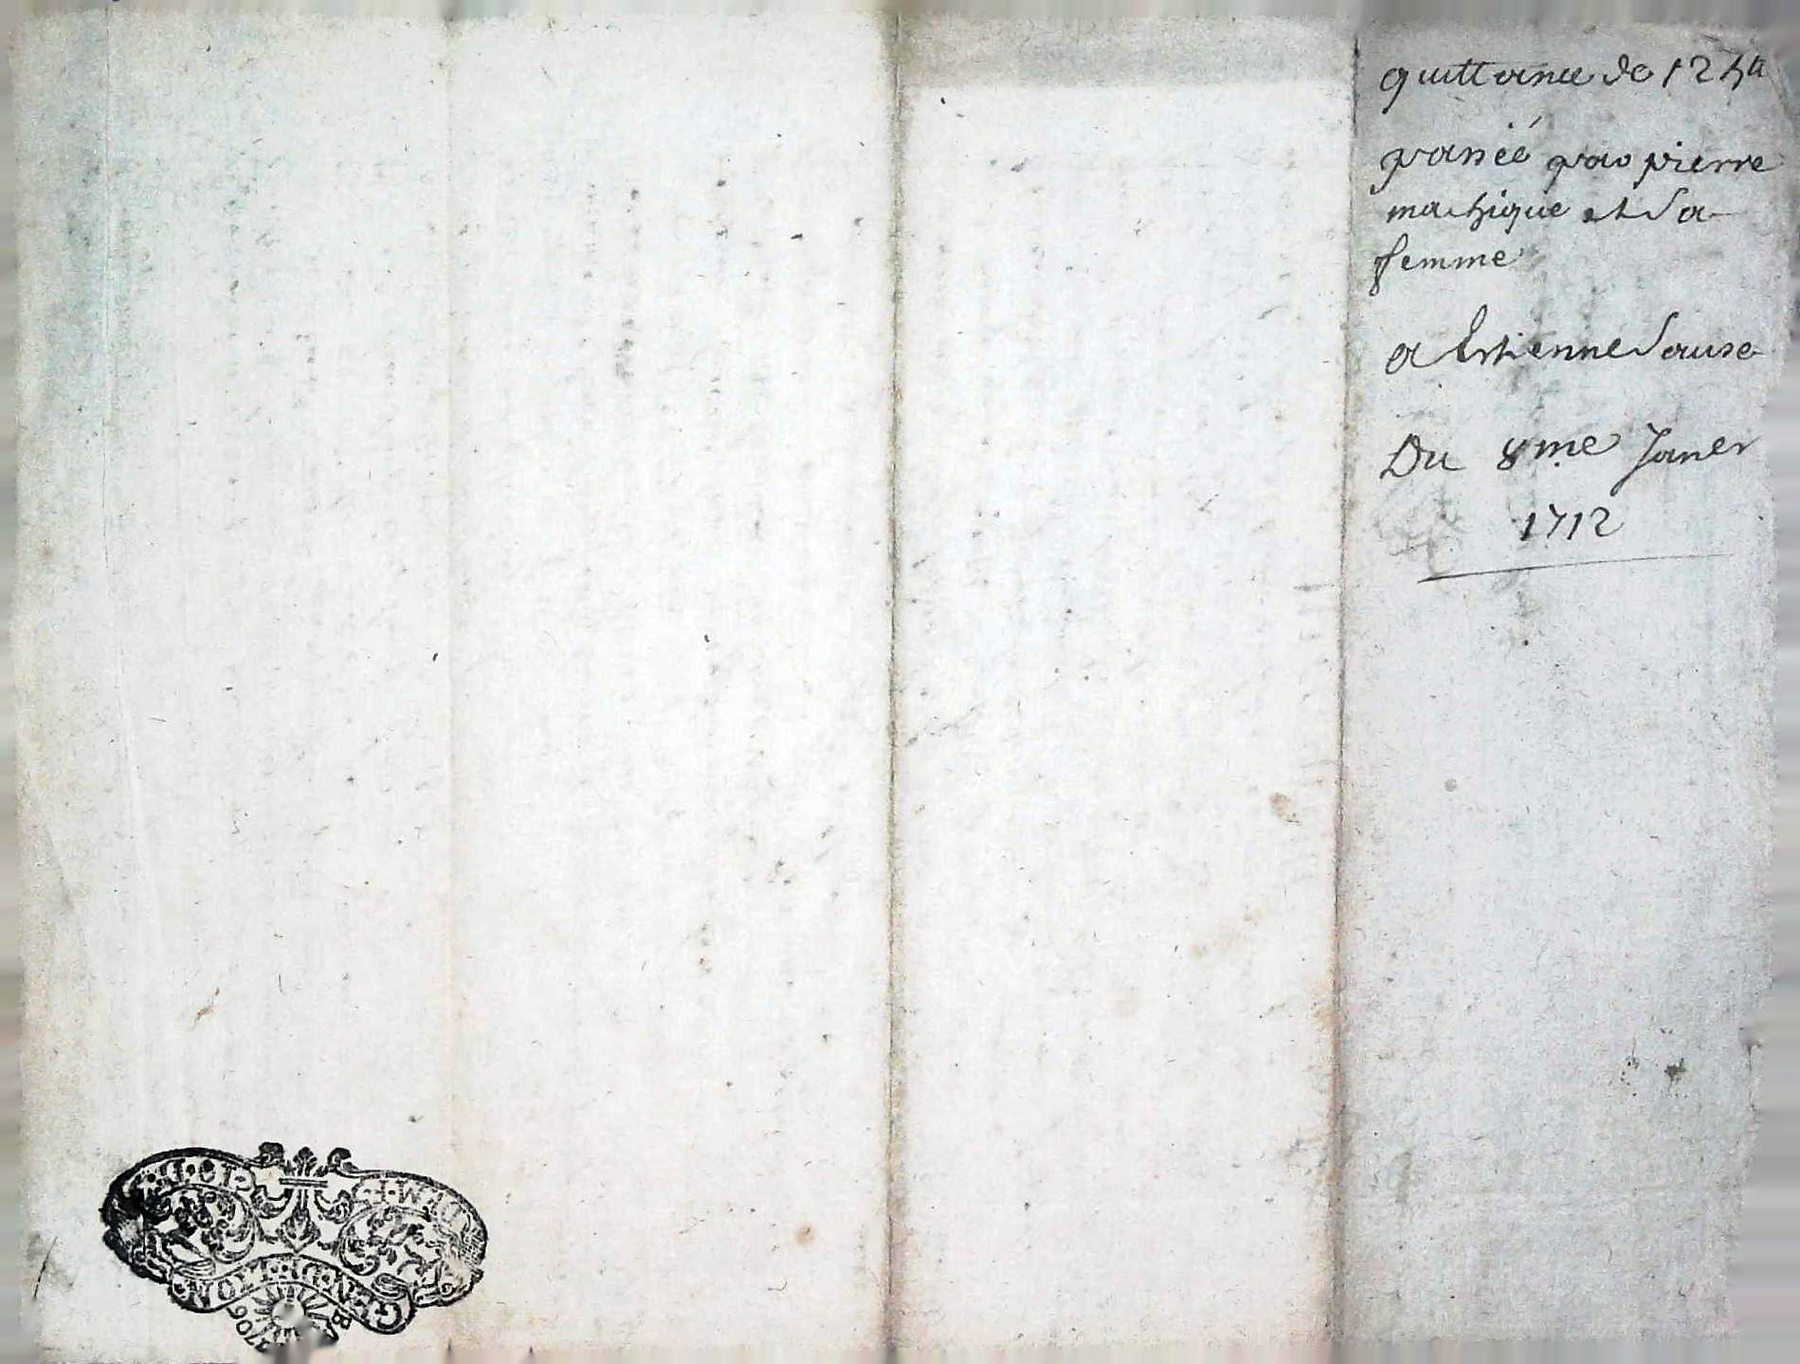 quittance de 125ᵗᵗ
passée par pierre
mazique et Sa
femme
a Estienne Sause
Du 8me Janer
1712